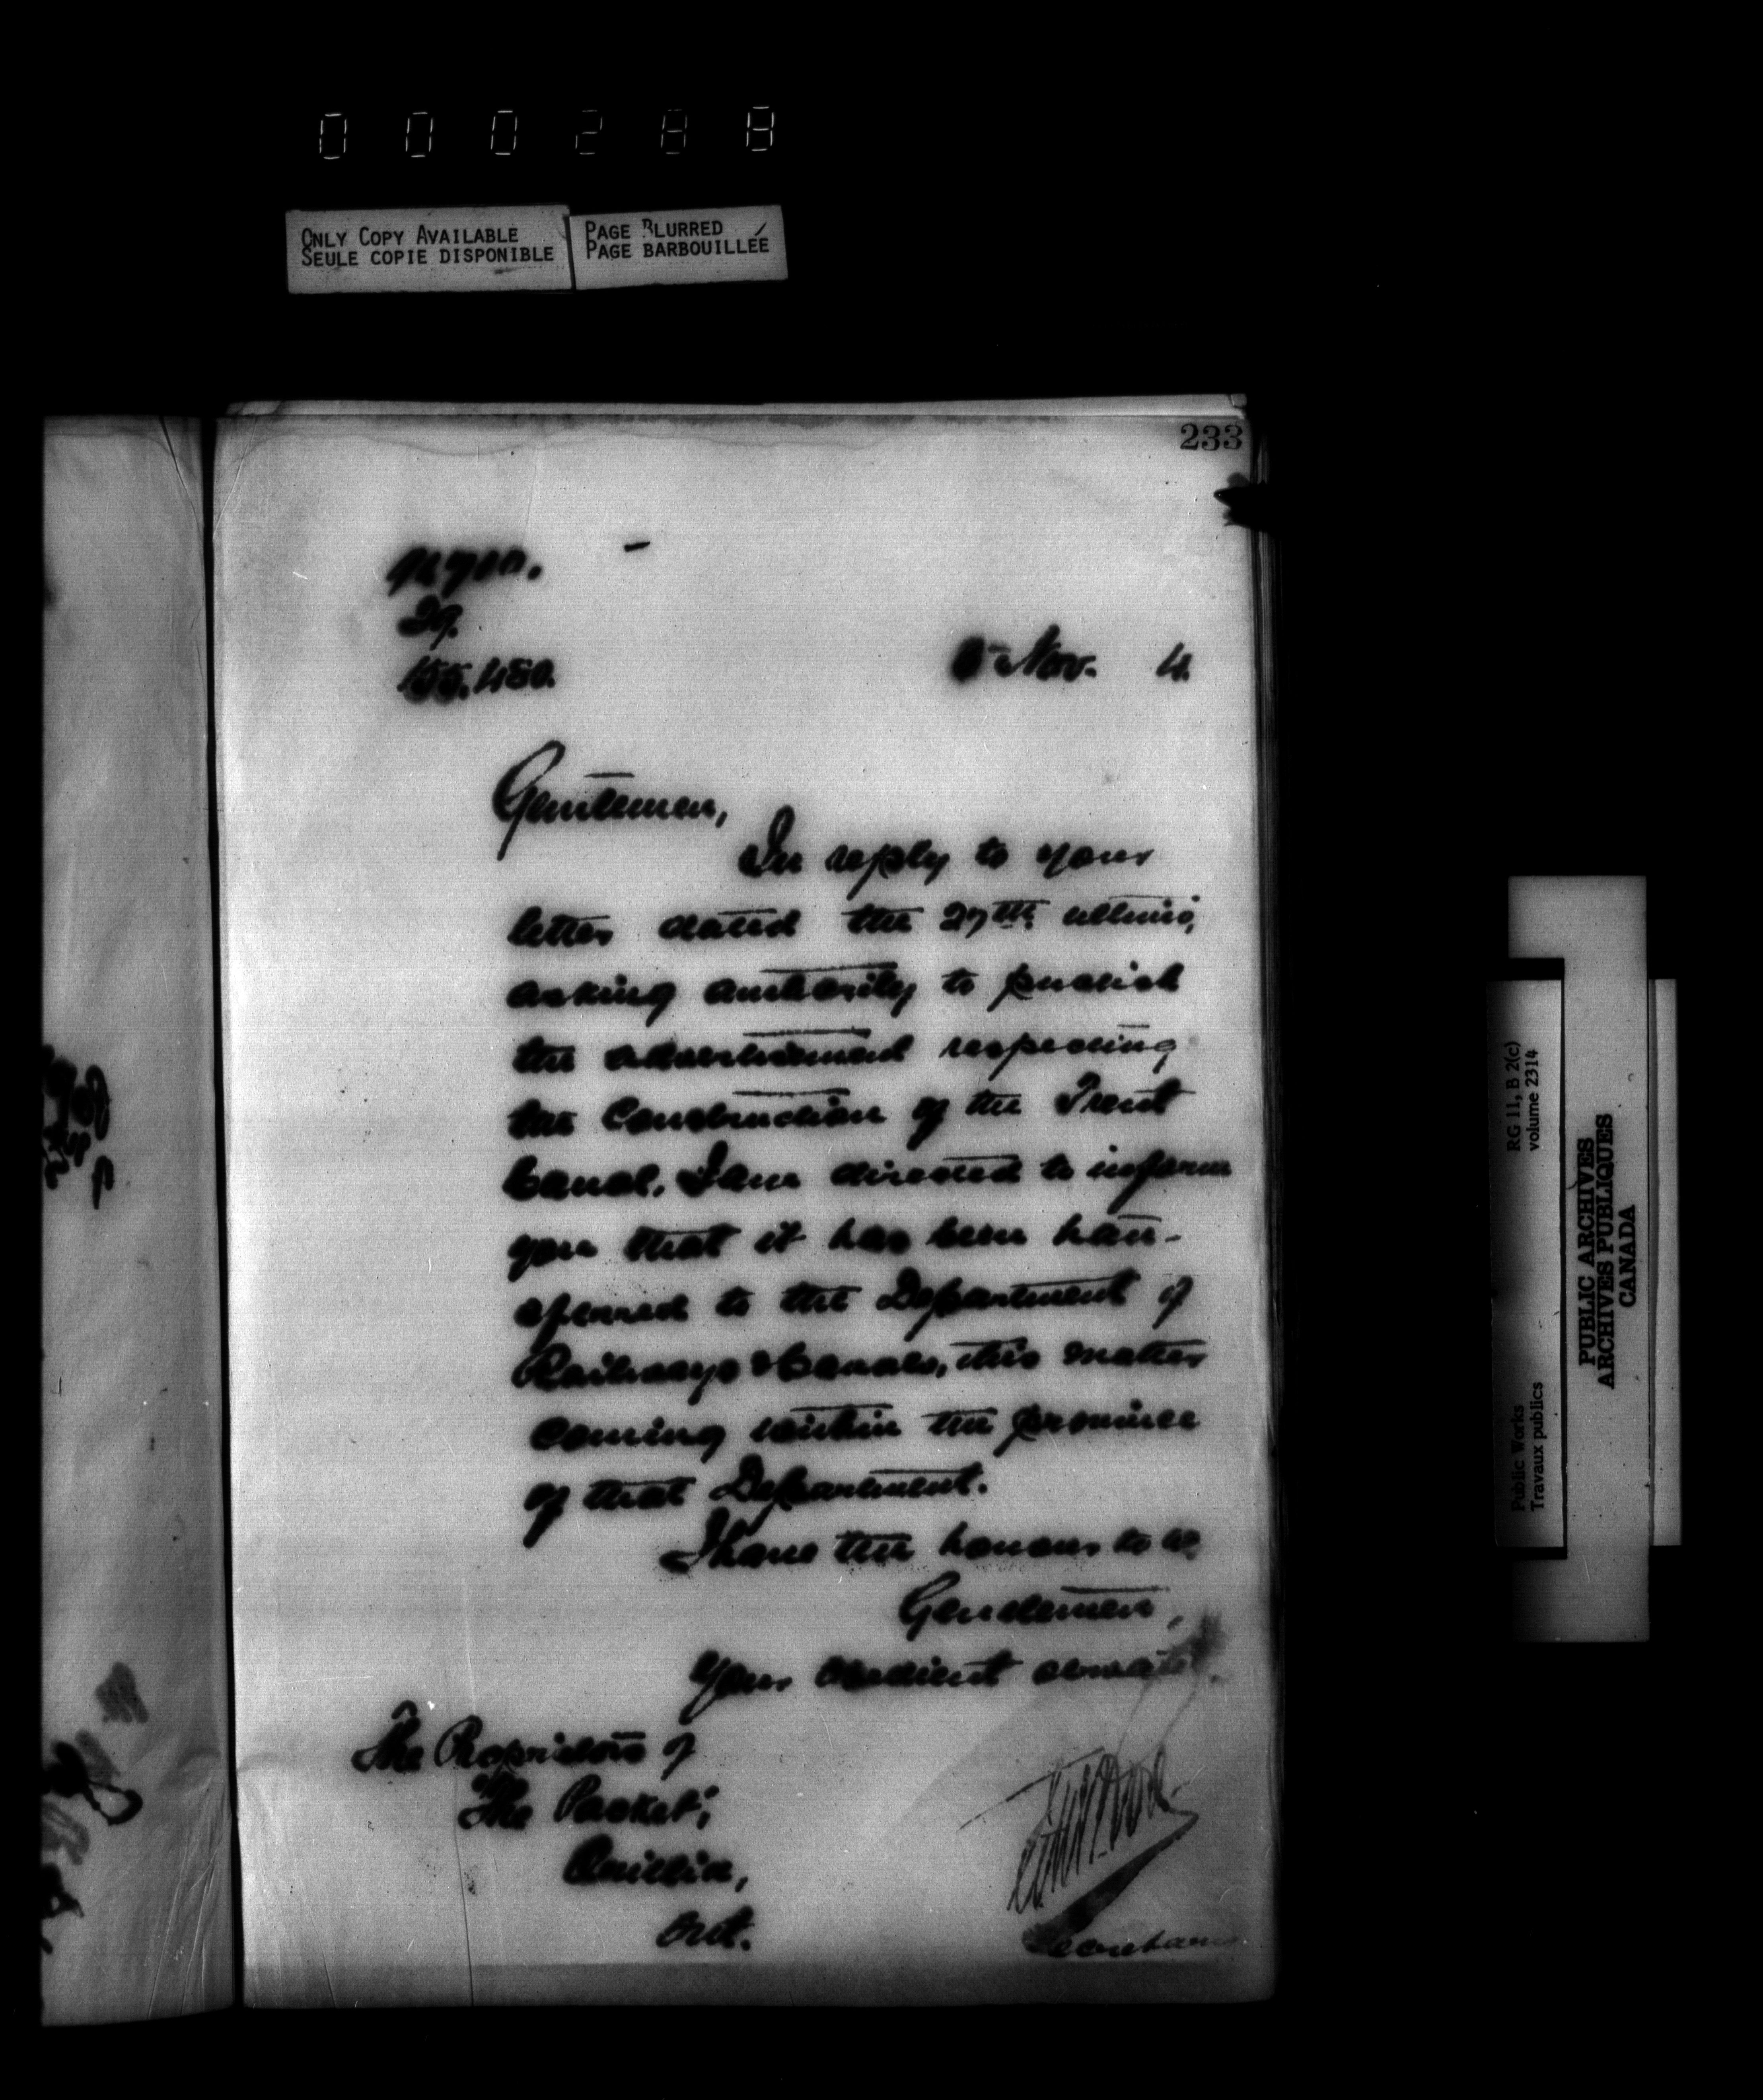 000288
ONLY COPY AVAILABLE
SEULE COPIE DISPONIBLE
PAGE BLURRED
PAGE BARBOUILLÉE
233
29.
155.480.
Nov. 4.
Gentlemen,
In reply to your
letter dated the 27th. ultimo,
asking authority to publish
the advertisement respecting
the Construction of the Trent
Canal, I am directed to inform
you that it has been tran-
sferred to the Department of
Railways & Canals, this matter
coming within the province
of that Department.
I have the honour to be
Gentlemen,
Your obedient servant
The Proprietors of
"The Packet",
Orillia,
Ont.
Secretary
RG 11, B 2(c)
volume 2314
Public Works
Travaux publics
PUBLIC ARCHIVES
ARCHIVES PUBLIQUES
CANADA